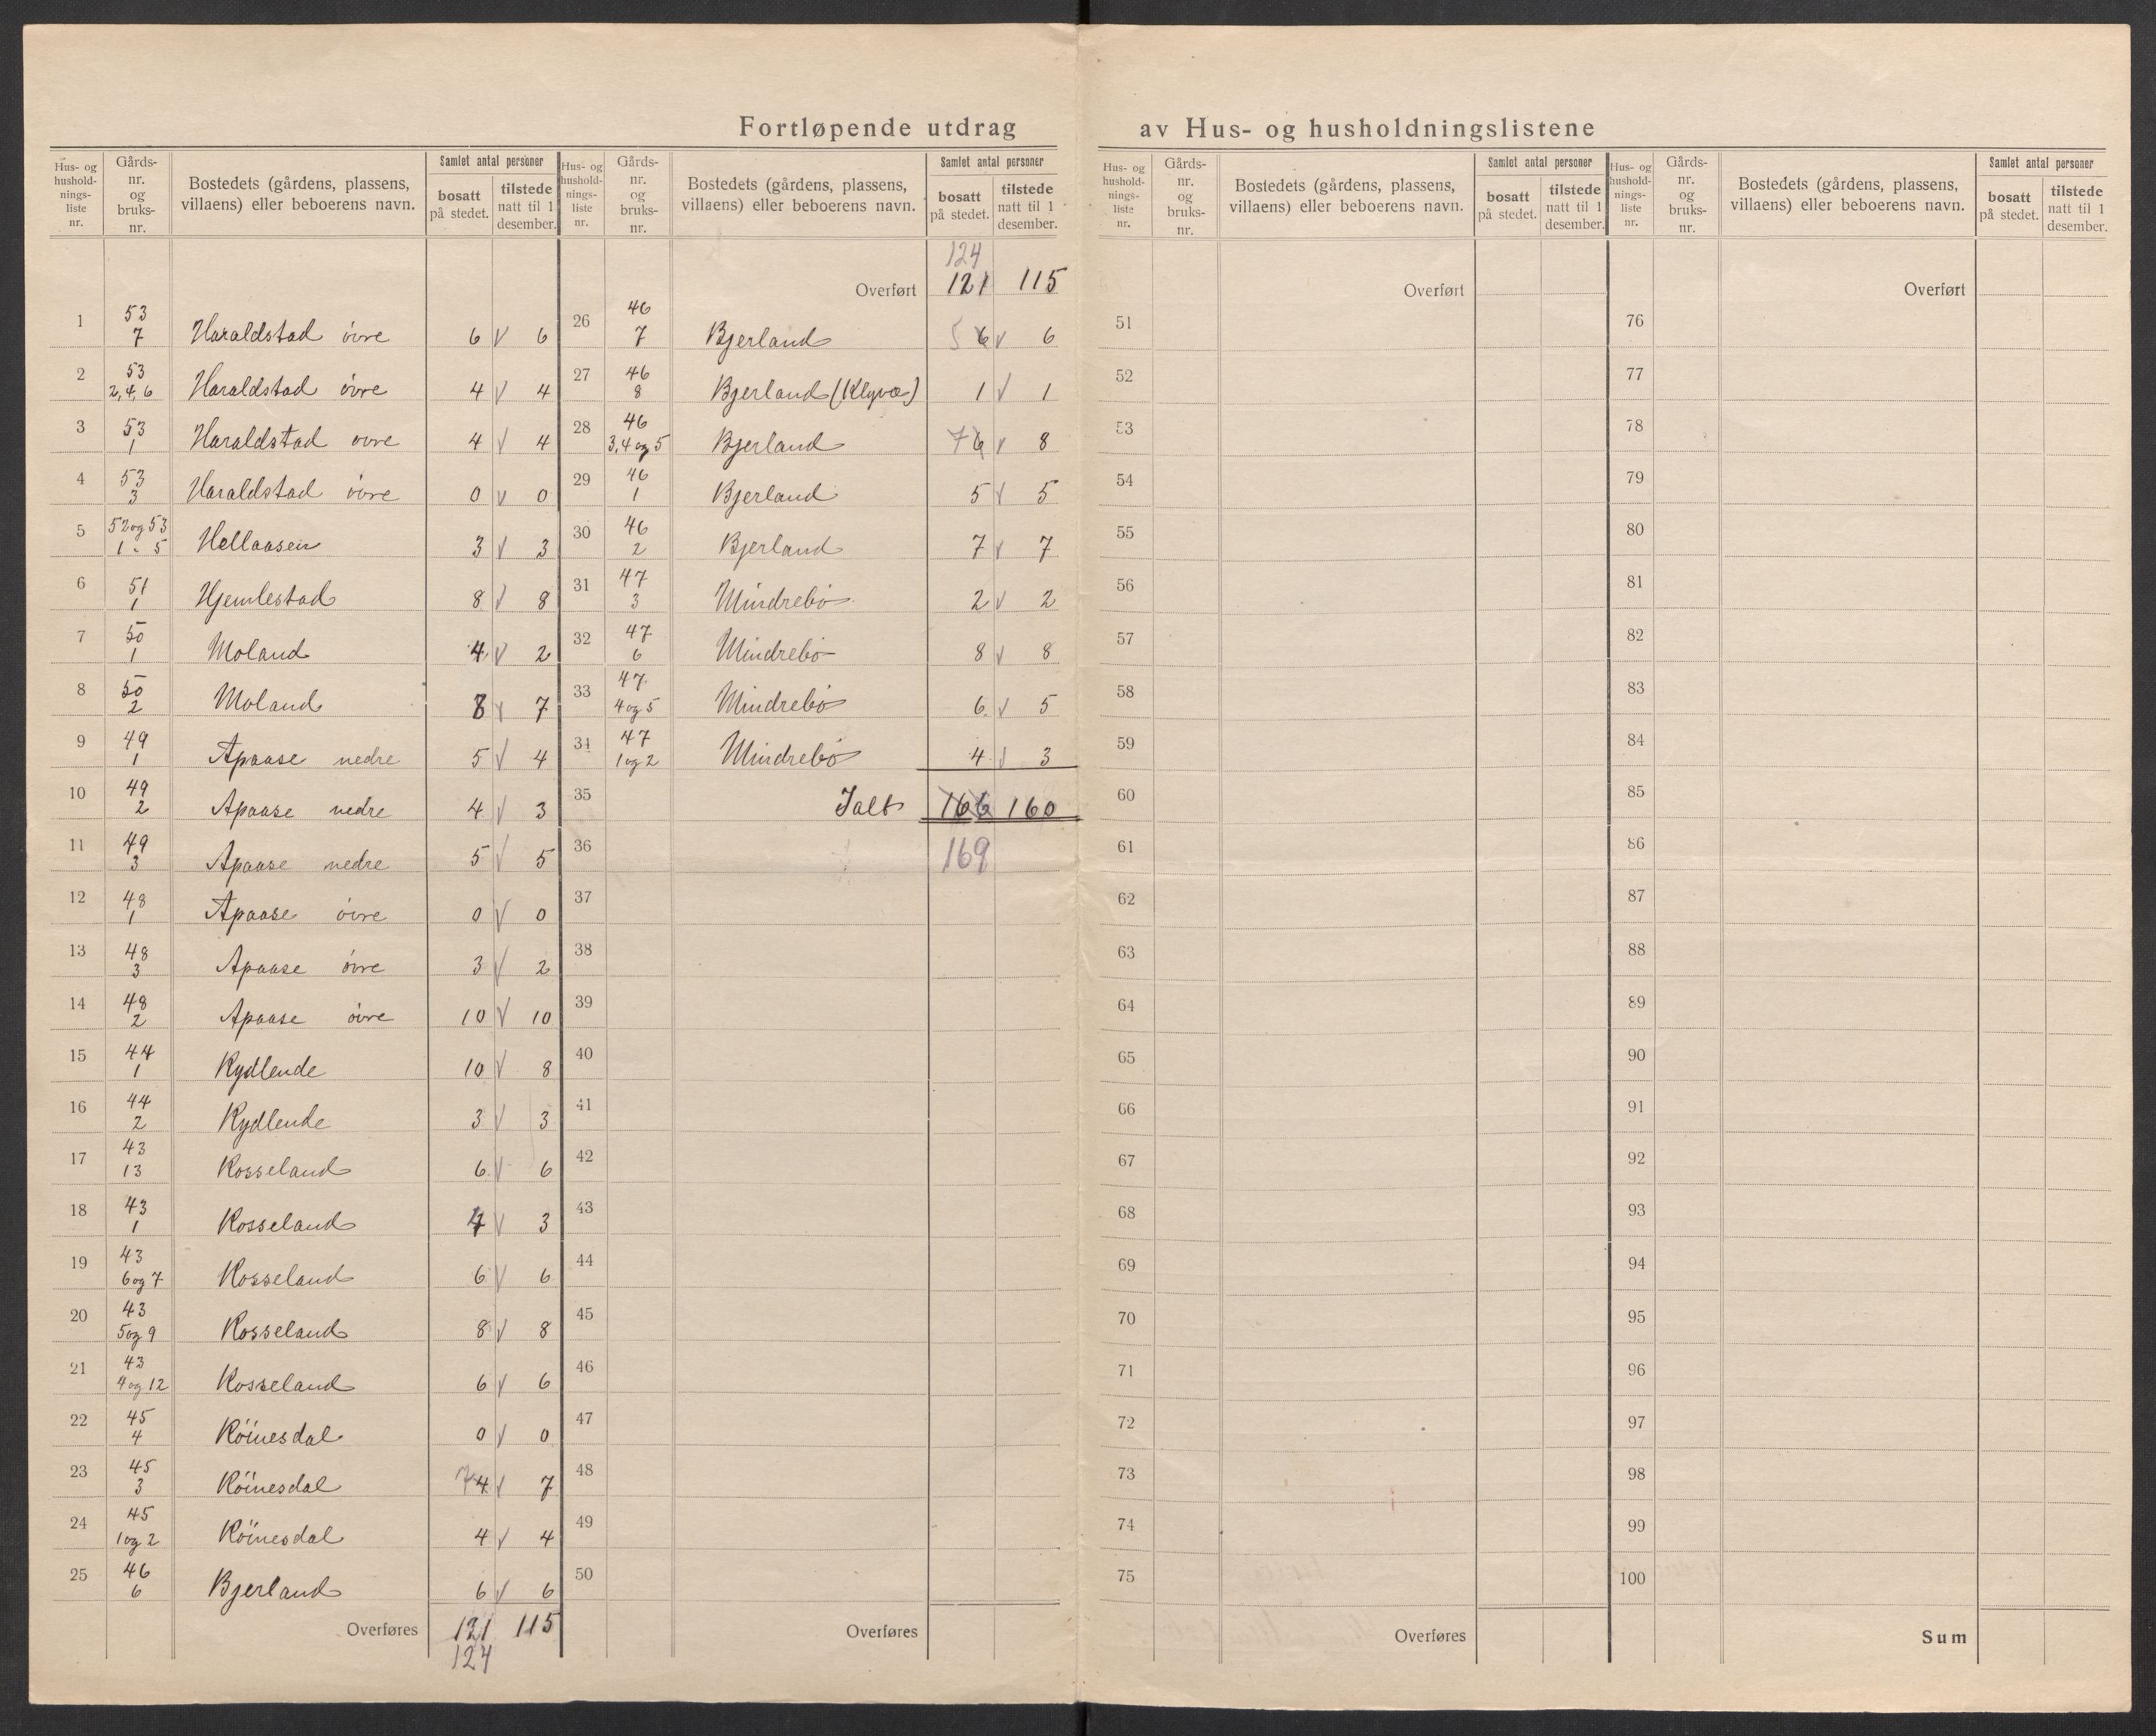 Fortløpende utdrag av Hus- og husholdningslistene
Hus- og husholdnings-liste nr. | Gårds-nr. og bruks-nr. | Bostedets (gårdens, plassens, villaens) eller beboerens navn. | Samlet antal personer | bosatt på stedet. | tilstede natt til 1 desember.
1 | 53 / 7 | Haraldstad övre | 6 v 6
2 | 53 / 2,4,6 | Haraldstad övre | 4 v 4
3 | 53 / 1 | Haraldstad övre | 4 v 4
4 | 53 / 3 | Haraldstad övre | 0 v 0
5 | 52 og 53 / 1 - 5 | Hellaasen | 3 v 3
6 | 51 / 1 | Hjemlestad | 8 v 8
7 | 50 / 1 | Moland | 4 v 2
8 | 50 / 2 | Moland | 8 v 7
9 | 49 / 1 | Apaase nedre | 5 v 4
10 | 49 / 2 | Apaase nedre | 4 v 3
11 | 49 / 3 | Apaase nedre | 5 v 5
12 | 48 / 1 | Apaase övre | 0 v 0
13 | 48 / 3 | Apaase övre | 3 v 2
14 | 48 / 2 | Apaase övre | 10 v 10
15 | 44 / 1 | Rydlende | 10 v 8
16 | 44 / 2 | Rydlende | 3 v 3
17 | 43 / 13 | Rosseland | 6 v 6
18 | 43 / 1 | Rosseland | 4 v 3
19 | 43 / 6 og 7 | Rosseland | 6 v 6
20 | 43 / 5 og 9 | Rosseland | 8 v 8
21 | 43 / 4 og 12 | Rosseland | 6 v 6
22 | 45 / 4 | Röinesdal | 0 v 0
23 | 45 / 3 | Röinesdal | 7 4 v 7
24 | 45 / 1 og 2 | Röinesdal | 4 v 4
25 | 46 / 6 | Bjerland | 6 v 6
Overføres | 121 115
124
Hus- og husholdnings-liste nr. | Gårds-nr. og bruks-nr. | Bostedets (gårdens, plassens, villaens) eller beboerens navn. | Samlet antal personer | bosatt på stedet. | tilstede natt til 1 desember.
124
Overført | 121 115
26 | 46 / 7 | Bjerland | 5 6 v 6
27 | 46 / 8 | Bjerland (Klyvæ) | 1 v 1
28 | 46 / 3,4 og 5 | Bjerland | 7 6 v 8
29 | 46 / 1 | Bjerland | 5 v 5
30 | 46 / 2 | Bjerland | 7 v 7
31 | 47 / 3 | Mindrebö | 2 v 2
32 | 47 / 6 | Mindrebö | 8 v 8
33 | 47 / 4 og 5 | Mindrebö | 6 v 5
34 | 47 / 1 og 2 | Mindrebö | 4 v 3
35 | Ialt | 166 160
36 | 169
37
38
39
40
41
42
43
44
45
46
47
48
49
50
Overføres
Hus- og husholdnings-liste nr. | Gårds-nr. og bruks-nr. | Bostedets (gårdens, plassens, villaens) eller beboerens navn. | Samlet antal personer | bosatt på stedet. | tilstede natt til 1 desember.
Overført
51
52
53
54
55
56
57
58
59
60
61
62
63
64
65
66
67
68
69
70
71
72
73
74
75
Overføres
Hus- og husholdnings-liste nr. | Gårds-nr. og bruks-nr. | Bostedets (gårdens, plassens, villaens) eller beboerens navn. | Samlet antal personer | bosatt på stedet. | tilstede natt til 1 desember.
Overført
76
77
78
79
80
81
82
83
84
85
86
87
88
89
90
91
92
93
94
95
96
97
98
99
100
Sum